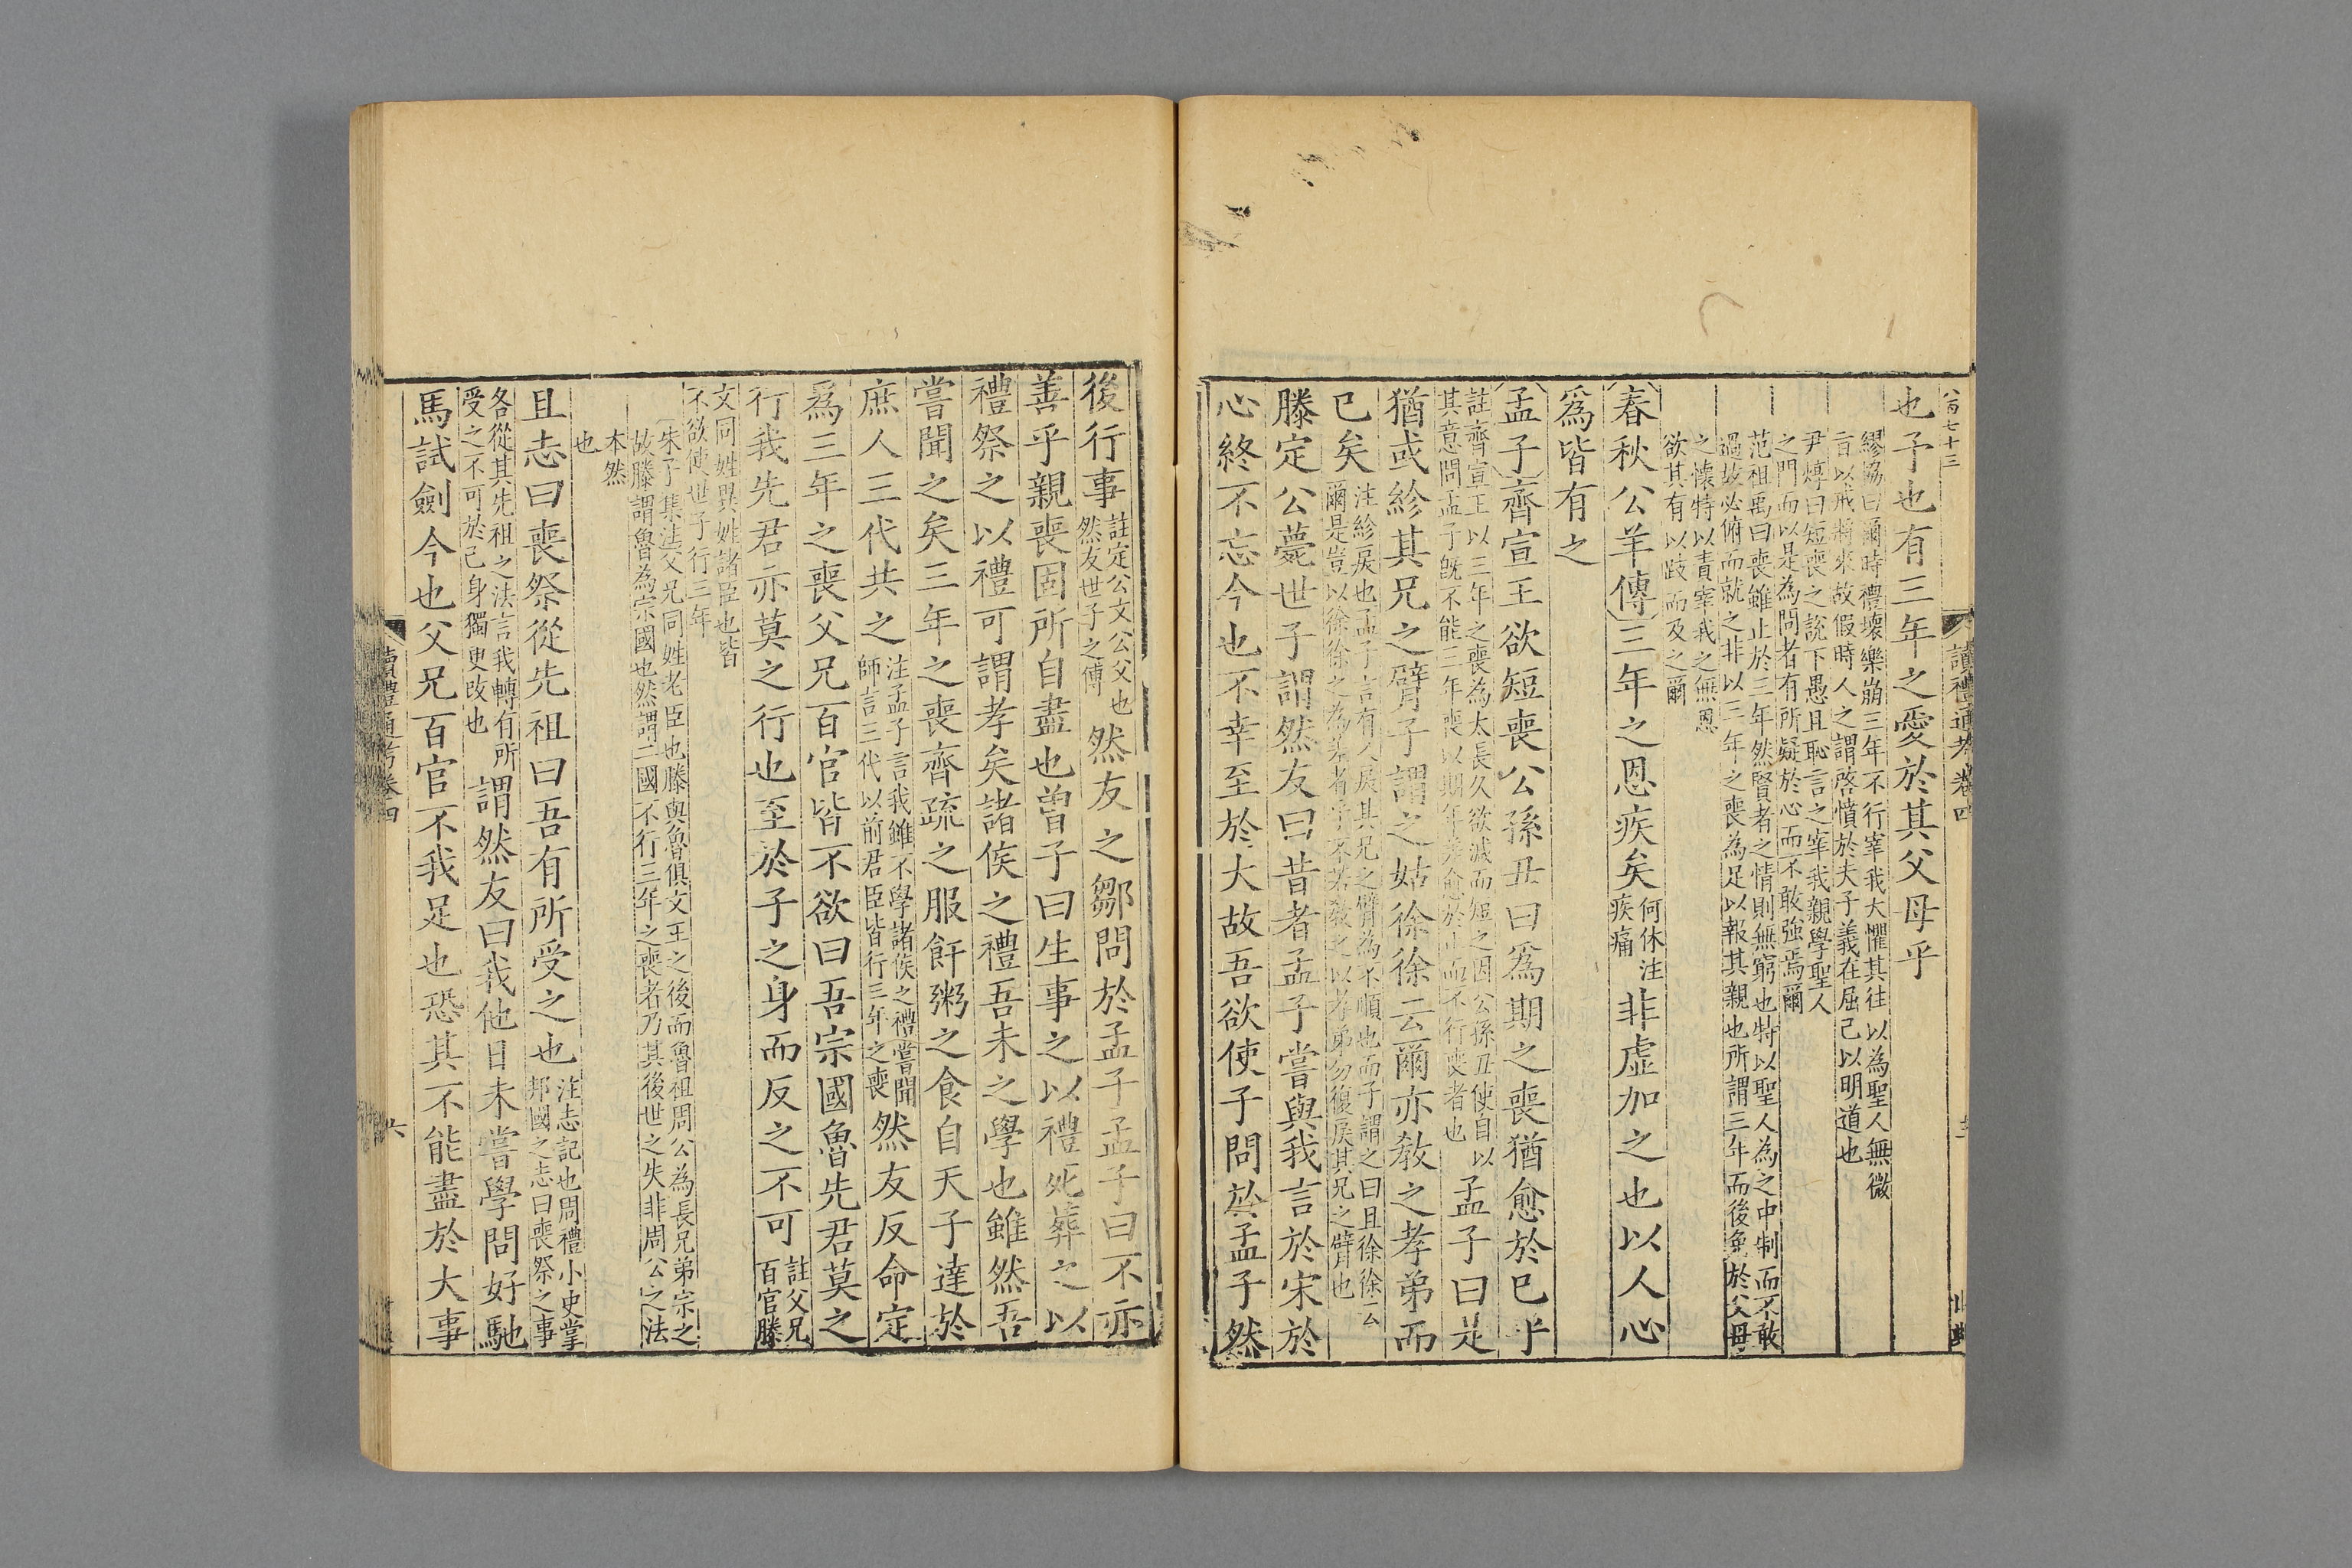 八百七十三
讀禮通考卷四
也予也有三年之愛於其父母乎
繆協曰爾時禮壞樂崩三年不行宰我大懼其往以為聖人無微
言以戒將來故假時人之謂啓憤於夫子義在屈己以明道也
尹焞曰短喪之說下愚且恥言之宰我親學聖人
之門而以是為問者有所疑於心而不敢強焉爾
范祖禹曰喪雖止於三年然賢者之情則無窮也特以聖人為之中制而不敢
過故必俯而就之非以三年之喪為足以報其親也所謂三年而後免於父母
之懷特以責宰我之無恩
欲其有以跂而及之爾
春秋公羊傳三年之恩疾矣何休注
疾痛非虛加之也以人心
爲皆有之
孟子齊宣王欲短喪公孫丑曰爲期之喪猶愈於已乎
註齊宣王以三年之喪為太長久欲減而短之因公孫丑使自以
其意問孟子旣不能三年喪以期年差愈於止而不行喪者也孟子曰是
猶或紾其兄之臂子謂之姑徐徐云爾亦敎之孝弟而
已矣注紾戾也孟子言有人戾其兄之臂為不順也而子謂之曰且徐徐云
爾是豈以徐徐之為差者乎不若敎之以孝弟勿復戾其兄之臂也
滕定公薨世子謂然友曰昔者孟子嘗與我言於宋於
心終不忘今也不幸至於大故吾欲使子問於孟子然
後行事註定公文公父也
然友世子之傅然友之鄒問於孟子孟子曰不亦
善乎親喪固所自盡也曾子曰生事之以禮死葬之以
禮祭之以禮可謂孝矣諸侯之禮吾未之學也雖然吾
嘗聞之矣三年之喪齊疏之服飦粥之食自天子達於
庶人三代共之注孟子言我雖不學諸侯之禮嘗聞
師言三代以前君臣皆行三年之喪然友反命定
爲三年之喪父兄百官皆不欲曰吾宗國魯先君莫之
行我先君亦莫之行也至於子之身而反之不可註父兄
百官滕
文同姓異姓諸臣也皆
不欲使世子行三年
朱子集注父兄同姓老臣也滕與魯俱文王之後而魯祖周公為長兄弟宗之
故滕謂魯為宗國也然謂二國不行三年之喪者乃其後世之失非周公之法
本然
也
且志曰喪祭從先祖曰吾有所受之也注志記也周禮小史掌
邦國之志曰喪祭之事
各從其先祖之法言我轉有所
受之不可於己身獨更改也謂然友曰我他日未嘗學問好馳
馬試劍今也父兄百官不我足也恐其不能盡於大事
讀禮通考卷四
六